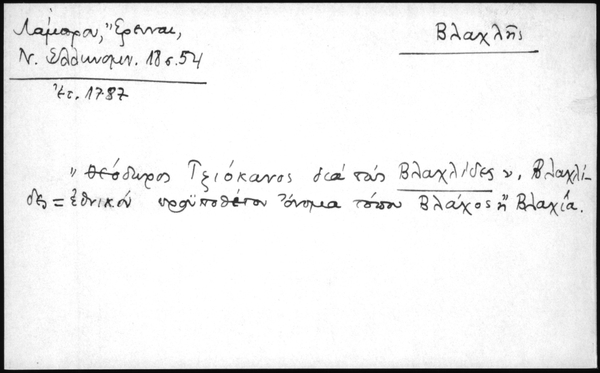 Λάμπρου, "Έρευναι,
Ν. Ἑλληνομν. 18 σ. 54
Βλαχλῆς
ἔτ. 1787
"Θεόδωρος Τζιόκανος διά τούς Βλαχλίδες", Βλαχλί-
δες = ἐθνικόν προϋποθέτον ὄνομα τόπου Βλάχος ἤ Βλαχία.